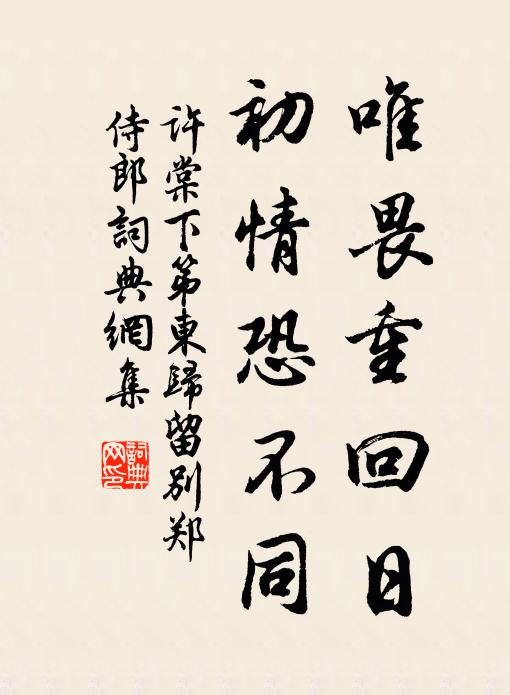 唯畏重回日
初情恐不同
许棠下第東歸留别郑
侍郎詞典網集
詞典网印